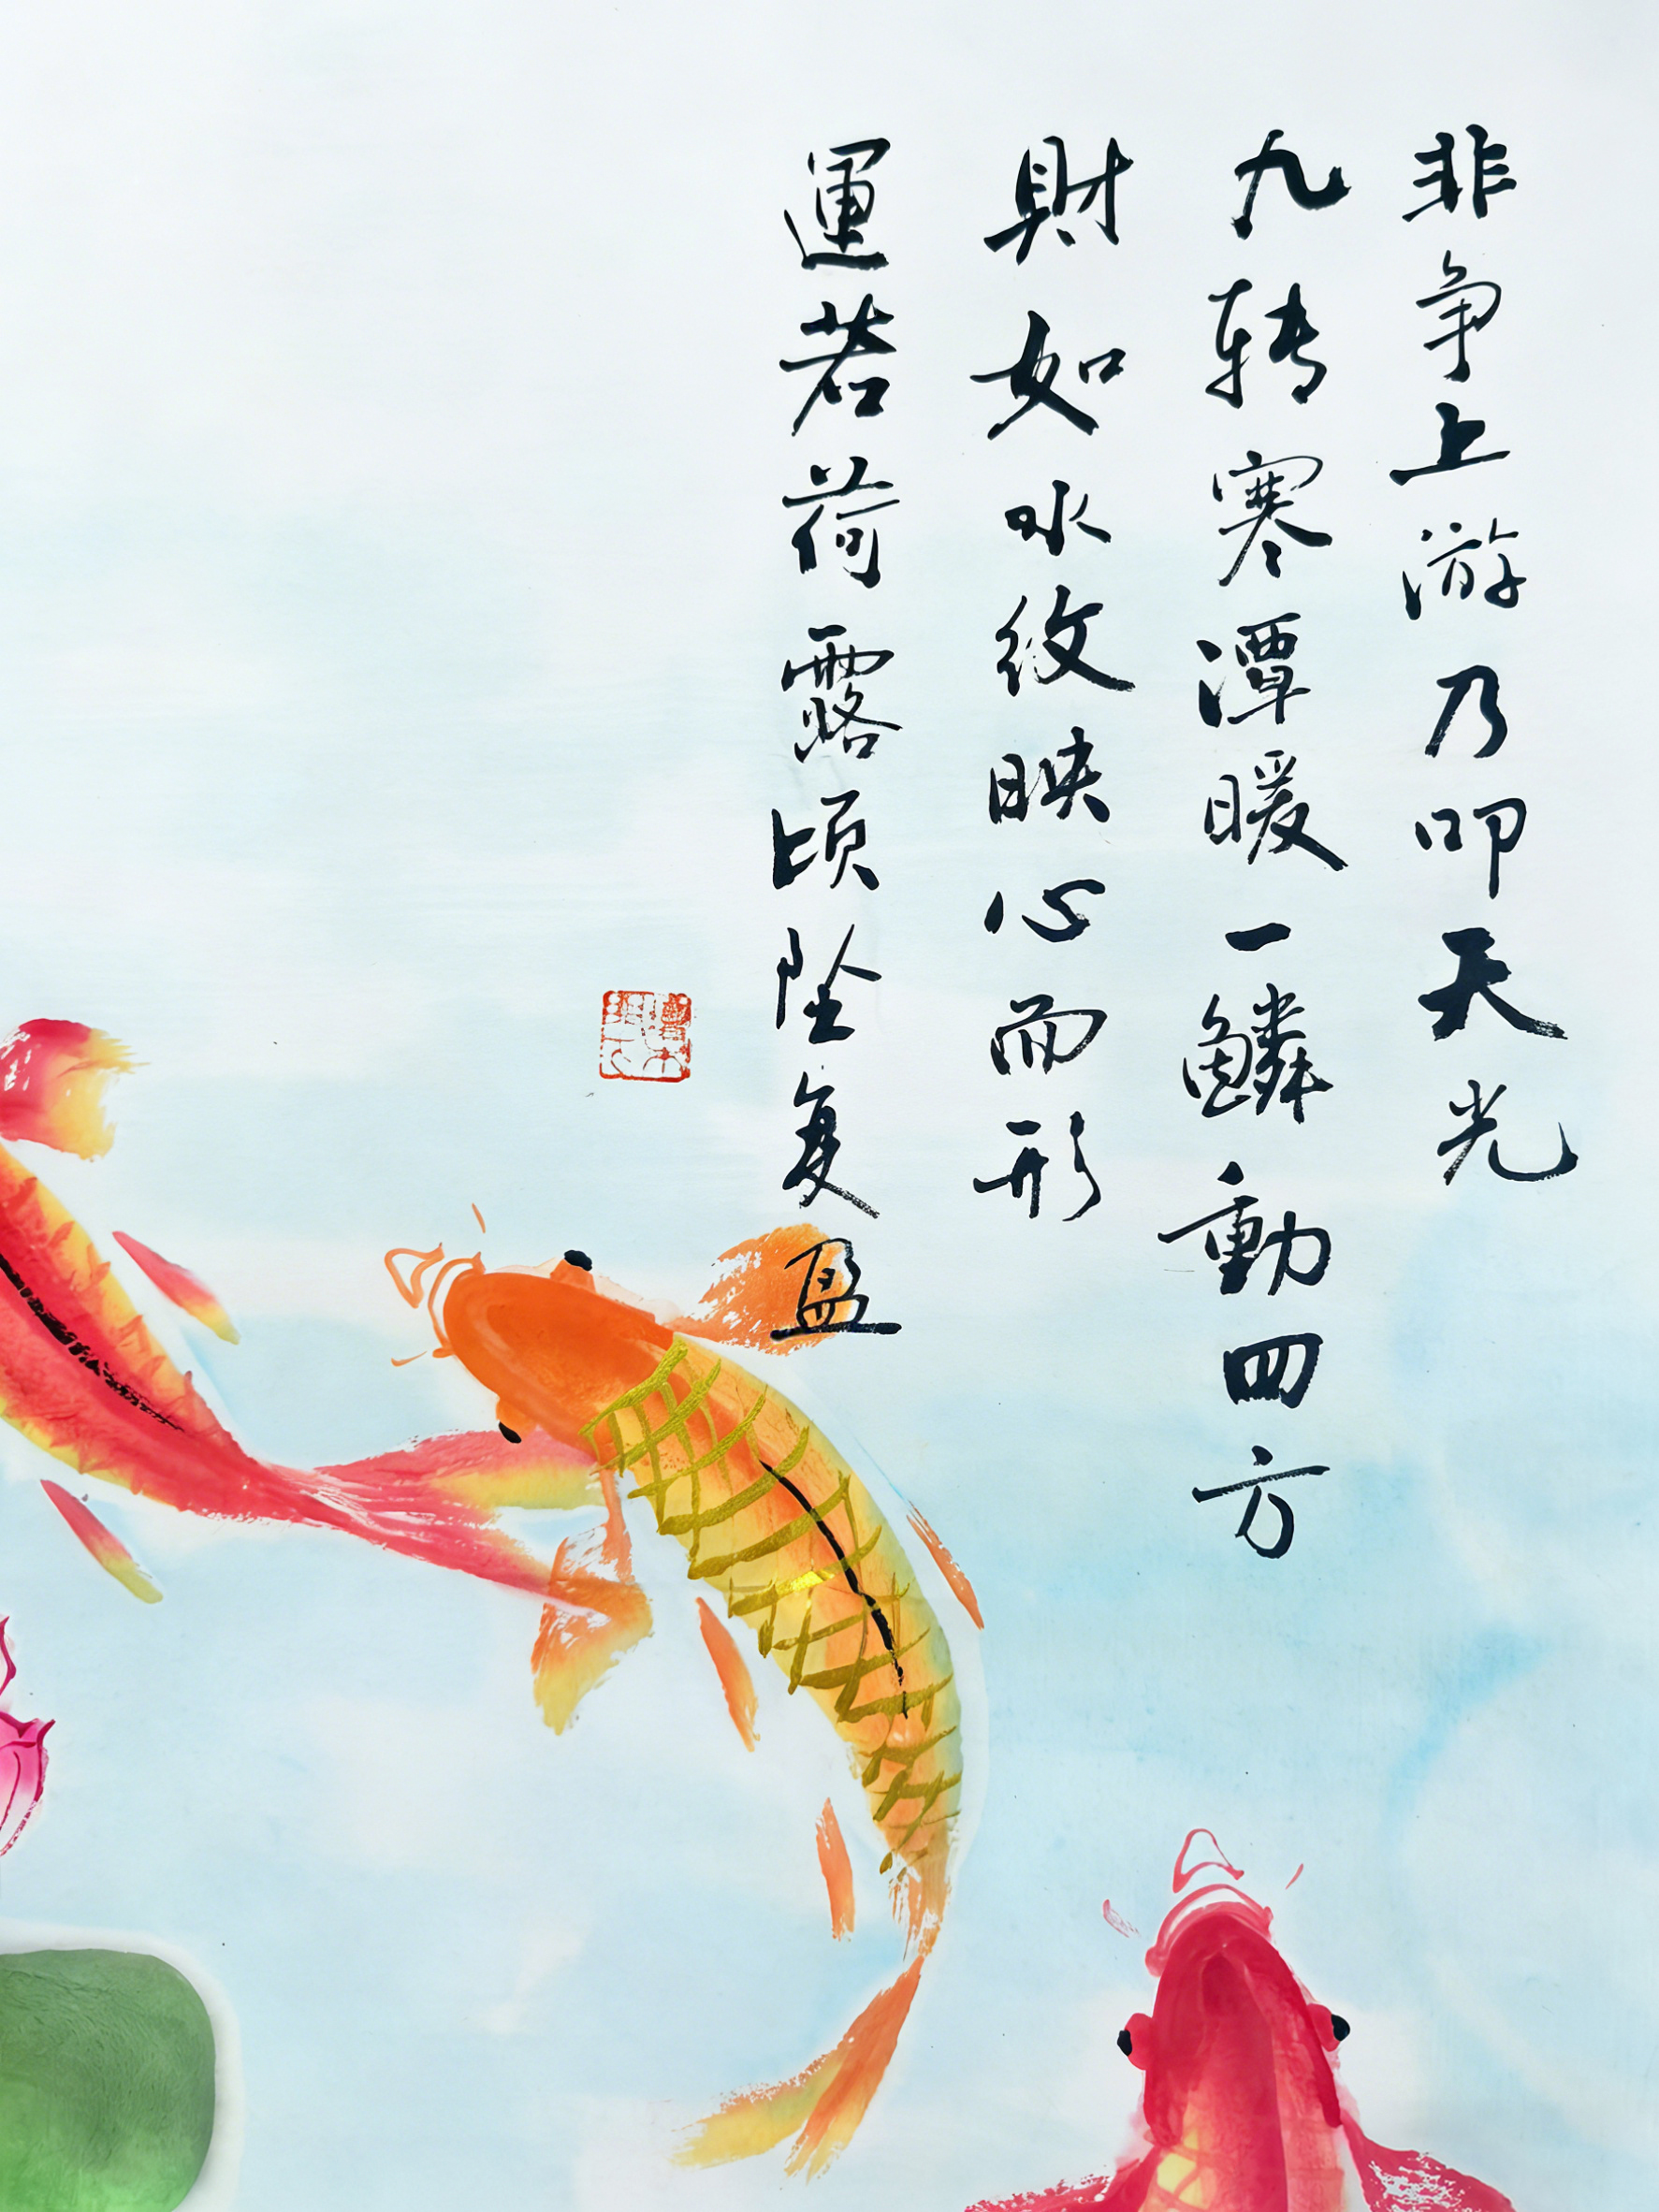 非争上游乃叩天光
九转寒潭暖一鳞動四方
財如水纹映心而形
運若荷露顷坠复盈